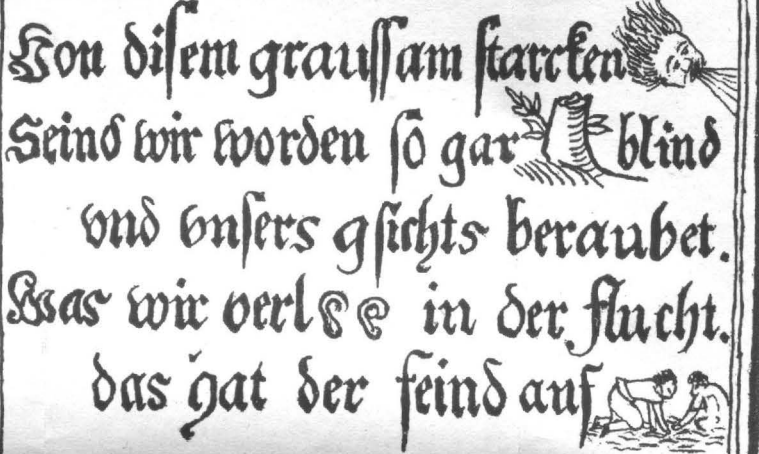 Von diſem grauſſam ſtarcken
Seind wir worden ſo gar blind
vnd vnſers gſichts beraubet.
Was wir verl in der flucht.
das hat der feind auf